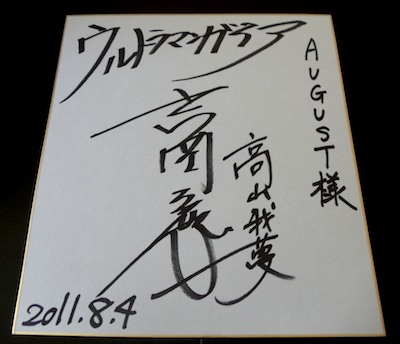 AUGUST様
ウルトラマンガイア
高山我夢
吉岡毅志
2011.8.4